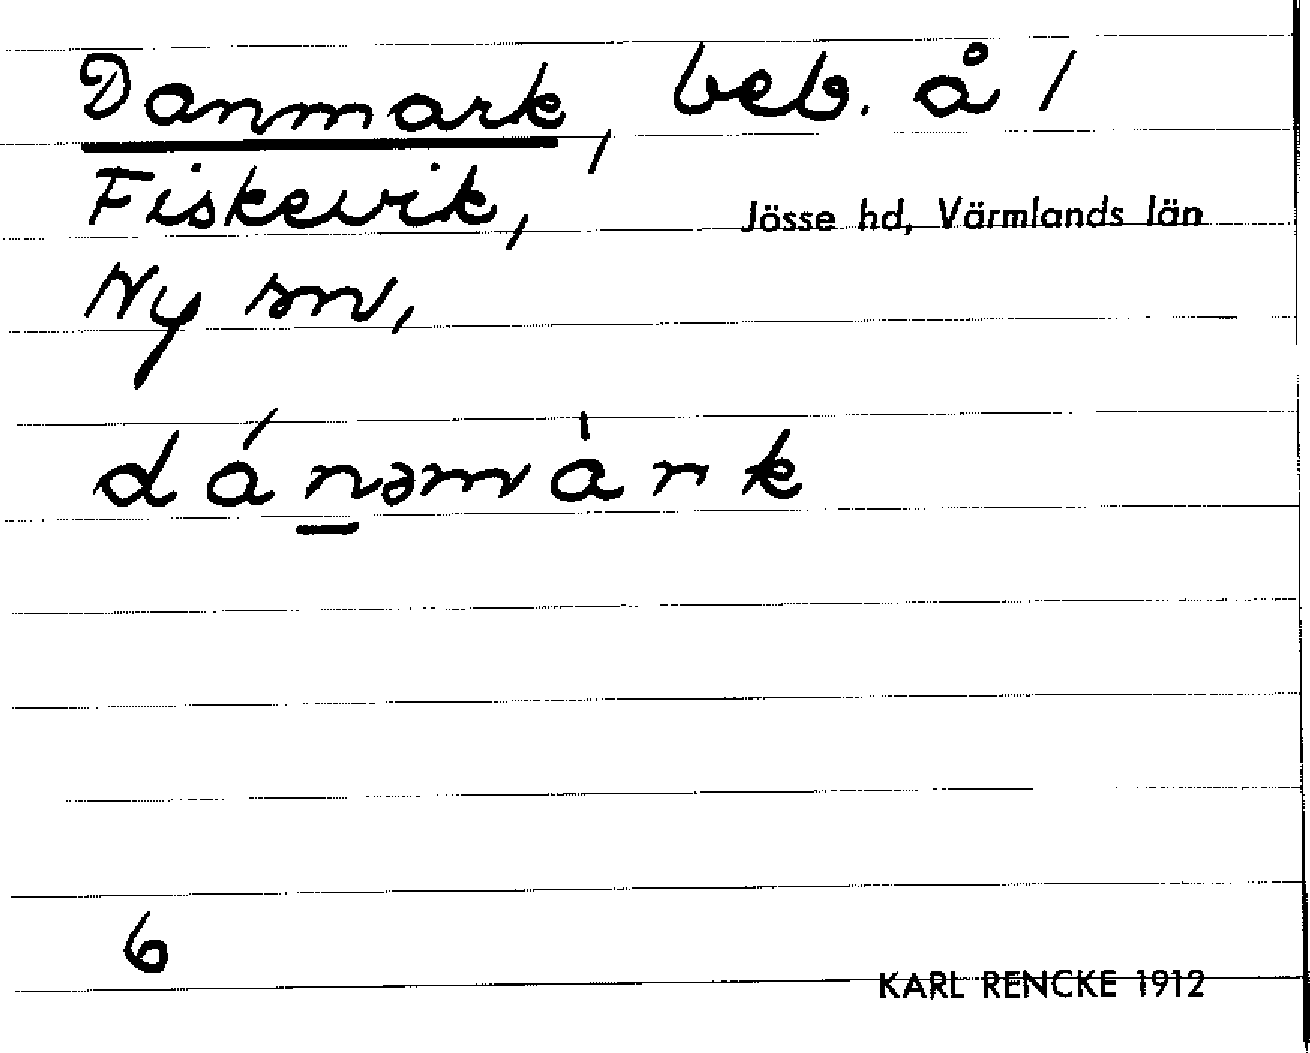 Danmark, beb. å 1
Fiskevik,
Jösse hd, Värmlands län
Ny sn,
dánəmàrk
6
KARL RENCKE 1912